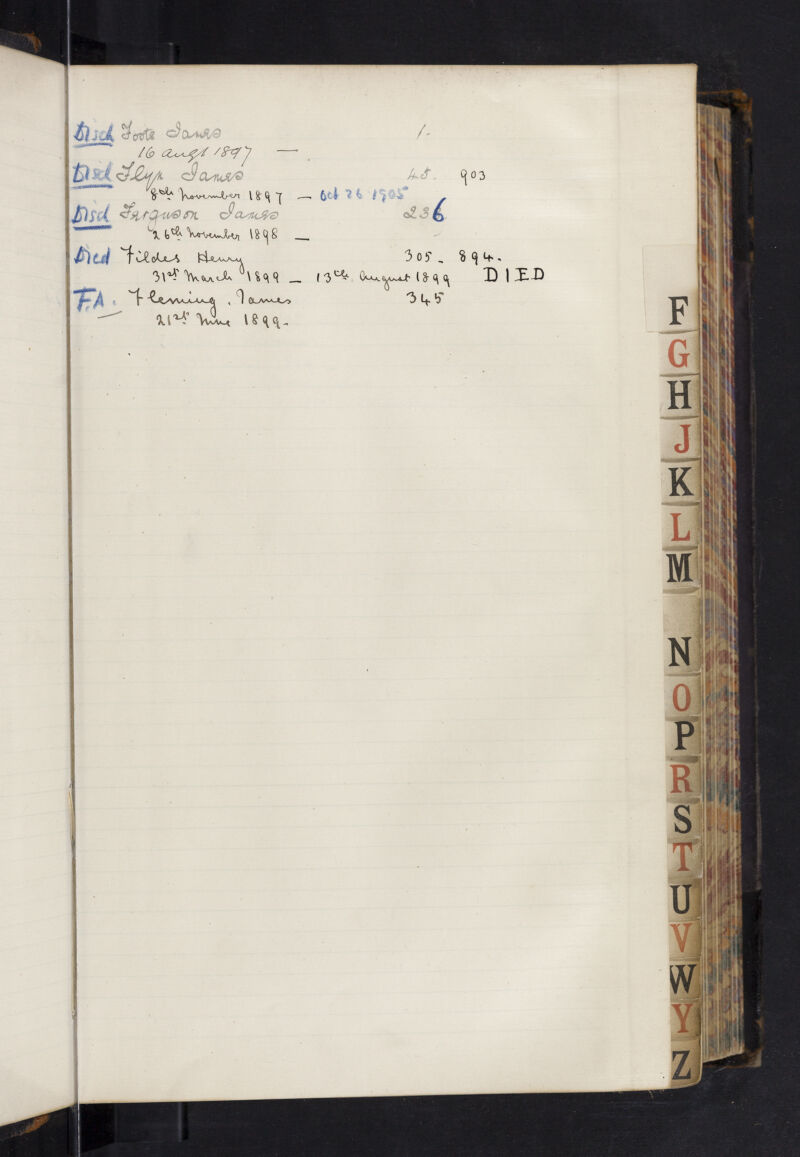 Disch Foote James 1.
16 augt 1897 —
Disd Flyn James 45. 903
8th November 1897 — Oct 26 1905
Disd Ferguson James 236
26th November 1898 —
Died Fildes Henry 305 - 894.
31st March 1899 — 13th August 1899 DIED
F.A. Fleming, James 345
21st June 1899 -
F
G
H
J
K
L
M
N
O
P
R
S
T
U
V
W
Y
Z